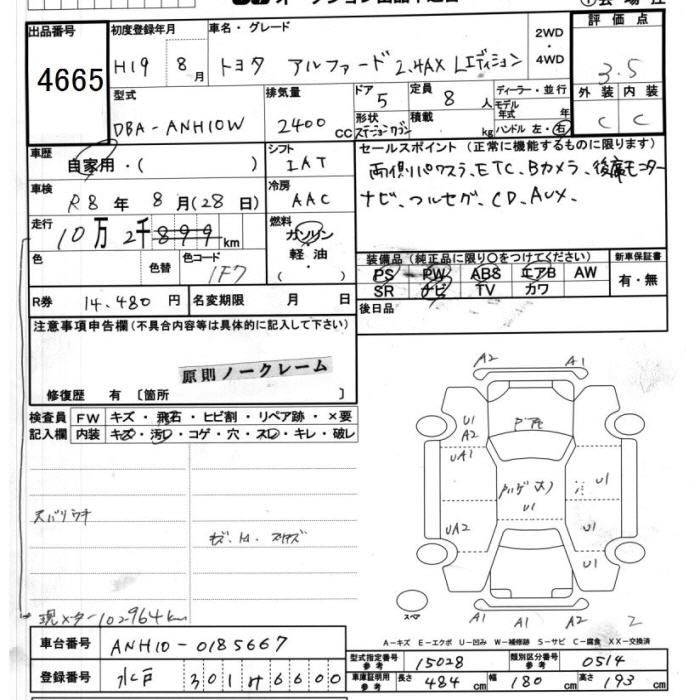 出品番号
4665
初度登録年月
H19 8月
車名・グレード
トヨタ アルファード 2.4AX Lエディション
2WD
・
4WD
評価点
3.5
外装 内装
C C
型式
DBA-ANH10W
排気量
2400 CC
ドア
5
形状
ステーションワゴン
定員
8 人
積載
kg
ディーラー・並行
モデル年式 年
ハンドル 左・右
車歴
自家用・( )
シフト
IAT
セールスポイント (正常に機能するものに限ります)
両側パワスラ、ETC、Bカメラ、後席モニター
ナビ、フルセグ、CD、AUX、
車検
R8年 8月(28日)
冷房
AAC
走行
10万 2千899km
燃料
ガソリン
軽油
( ・ )
色
色替
色コード
1F7
装備品 (純正品に限り○をつけてください)
PS PW ABS エアB AW
SR ナビ TV カワ
新車保証書
有・無
R券 14,480円
名変期限 月 日
後日品
注意事項申告欄 (不具合内容等は具体的に記入して下さい)
原則ノークレーム
修復歴 有 〔箇所 〕
検査員記入欄
FW キズ・飛石・ヒビ割・リペア跡・×要
内装 キズ・汚レ・コゲ・穴・スレ・キレ・破レ
A2 A1
U1
A2
UA1
UA2
U1
U1
U1
U1
A1 A1 A2 2
スペア
現メーター102964km
A-キズ E-エクボ U-凹み W-補修跡 S-サビ C-腐食 XX-交換済
車台番号 ANH10-0185667
登録番号 水戸 301 サ 6600
型式指定番号 参考 15028
類別区分番号 参考 0514
車庫証明用 参考 長さ 484cm 幅 180cm 高さ 193cm